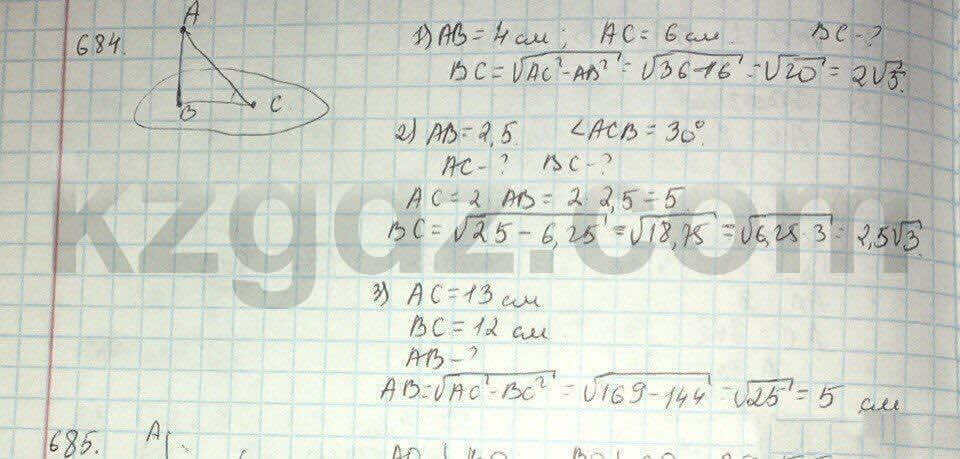 684.
A
B
C
1) AB = 4 см; AC = 6 см. BC - ?
BC = √AC² - AB² = √36-16 = √20 = 2√5.
2) AB = 2,5. ∠ACB = 30°
AC - ? BC - ?
AC = 2 AB = 2·2,5 = 5
BC = √25 - 6,25 = √18,75 = √6,25·3 = 2,5√3.
kzgdz.com
3) AC = 13 см
BC = 12 см
AB - ?
AB = √AC² - BC² = √169 - 144 = √25 = 5 см
685. A